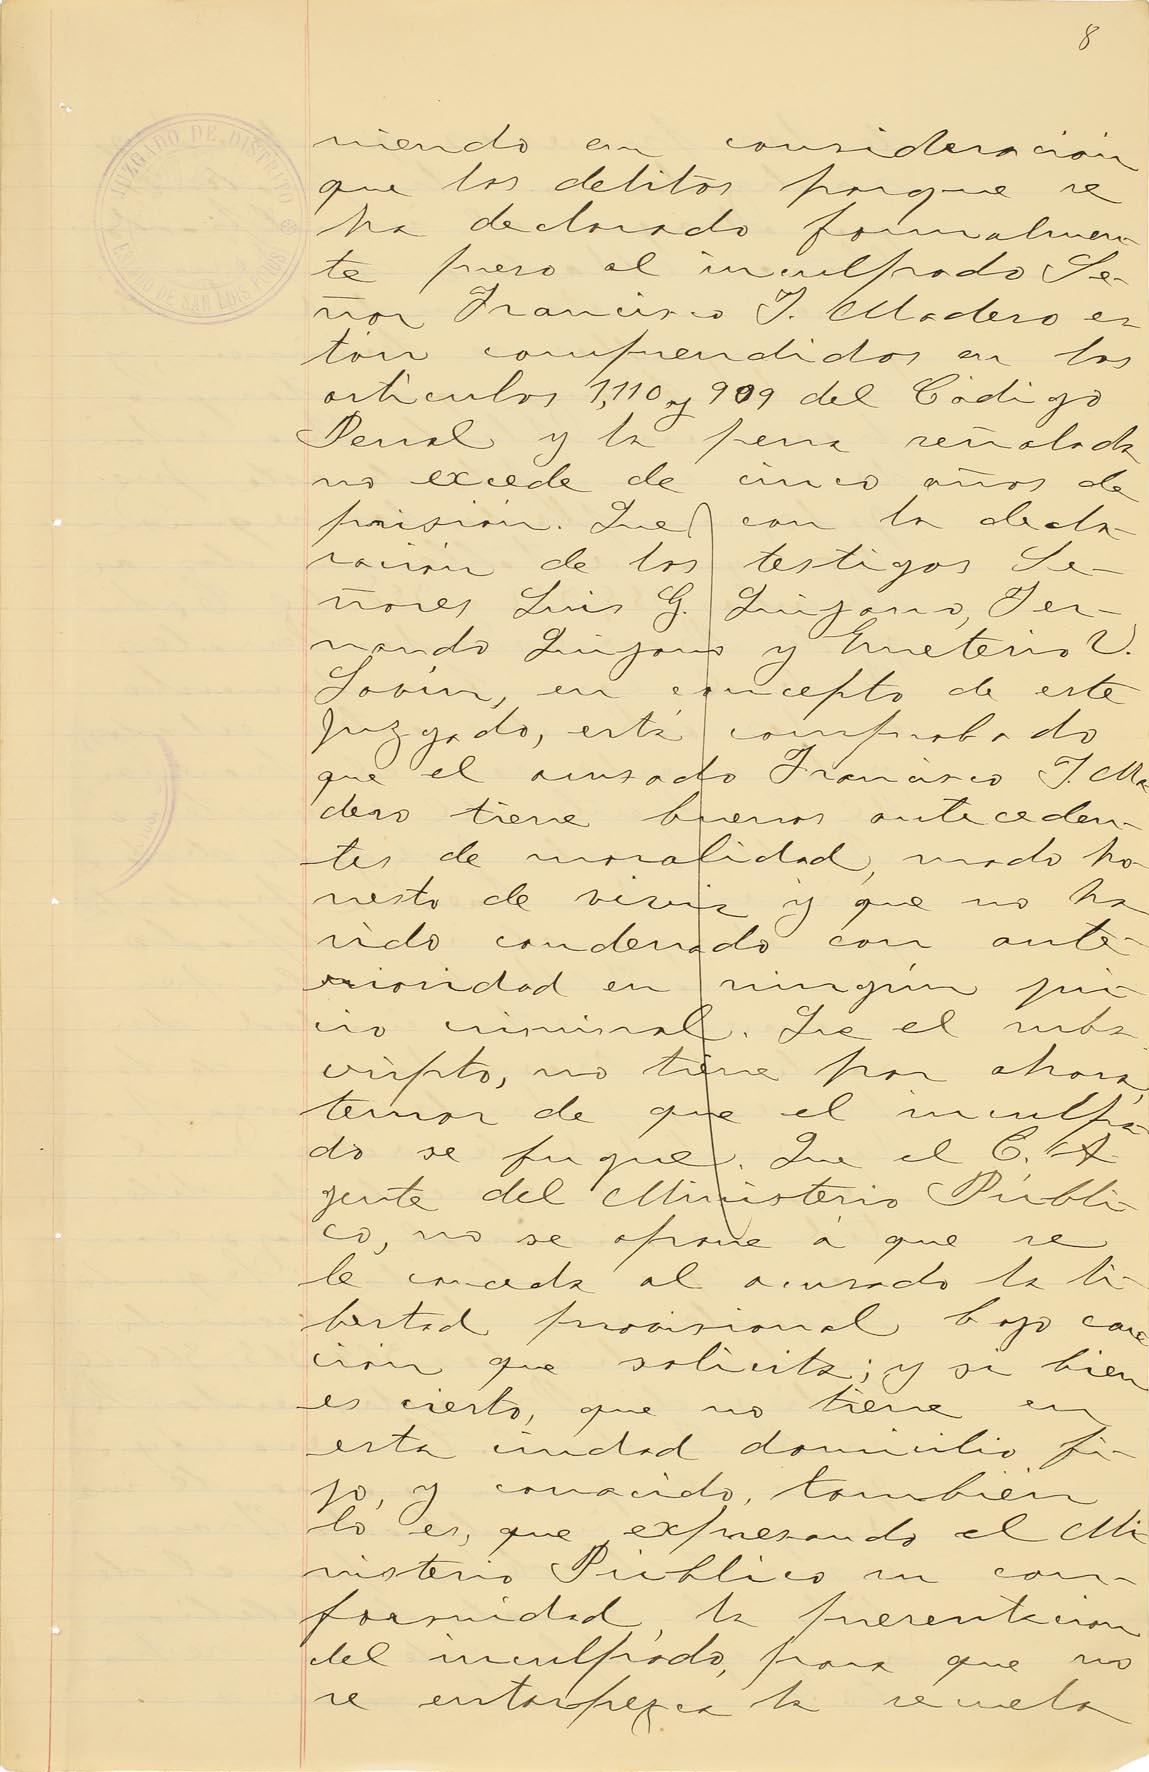 8
JUZGADO DE DISTRITO
ESTADO DE SAN LUIS POTOSI
niendo en consideración
que los delitos porque se
ha declarado formalmen-
te preso al inculpado Se-
ñor Francisco I. Madero es
tán comprendidos en los
artículos 1,110 y 909 del Código
Penal y la pena señalada
no excede de cinco años de
prisión. Que con la decla-
ración de los testigos Se-
ñores Luis G. Quijano, Fer-
nando Quijano y Emeterio V.
Lavín, en concepto de este
Juzgado, está comprobado
que el acusado Francisco I. Ma
dero tiene buenos anteceden-
tes de moralidad, modo ho-
nesto de vivir y que no ha
sido condenado con ante-
rioridad en ningún jui-
cio criminal. Que el subs
cripto, no tiene por ahora,
temor de que el inculpa-
do se fugue. Que el C. A-
gente del Ministerio Públi-
co, no se opone á que se
le conceda al acusado la li-
bertad provisional bajo cau
ción que solicita; y si bien
es cierto, que no tiene en
esta ciudad domicilio fi-
jo, y conocido, también
lo es, que expresando el Mi
nisterio Público su con-
formidad, la presentación
del inculpado, para que no
se entorpezca la secuela